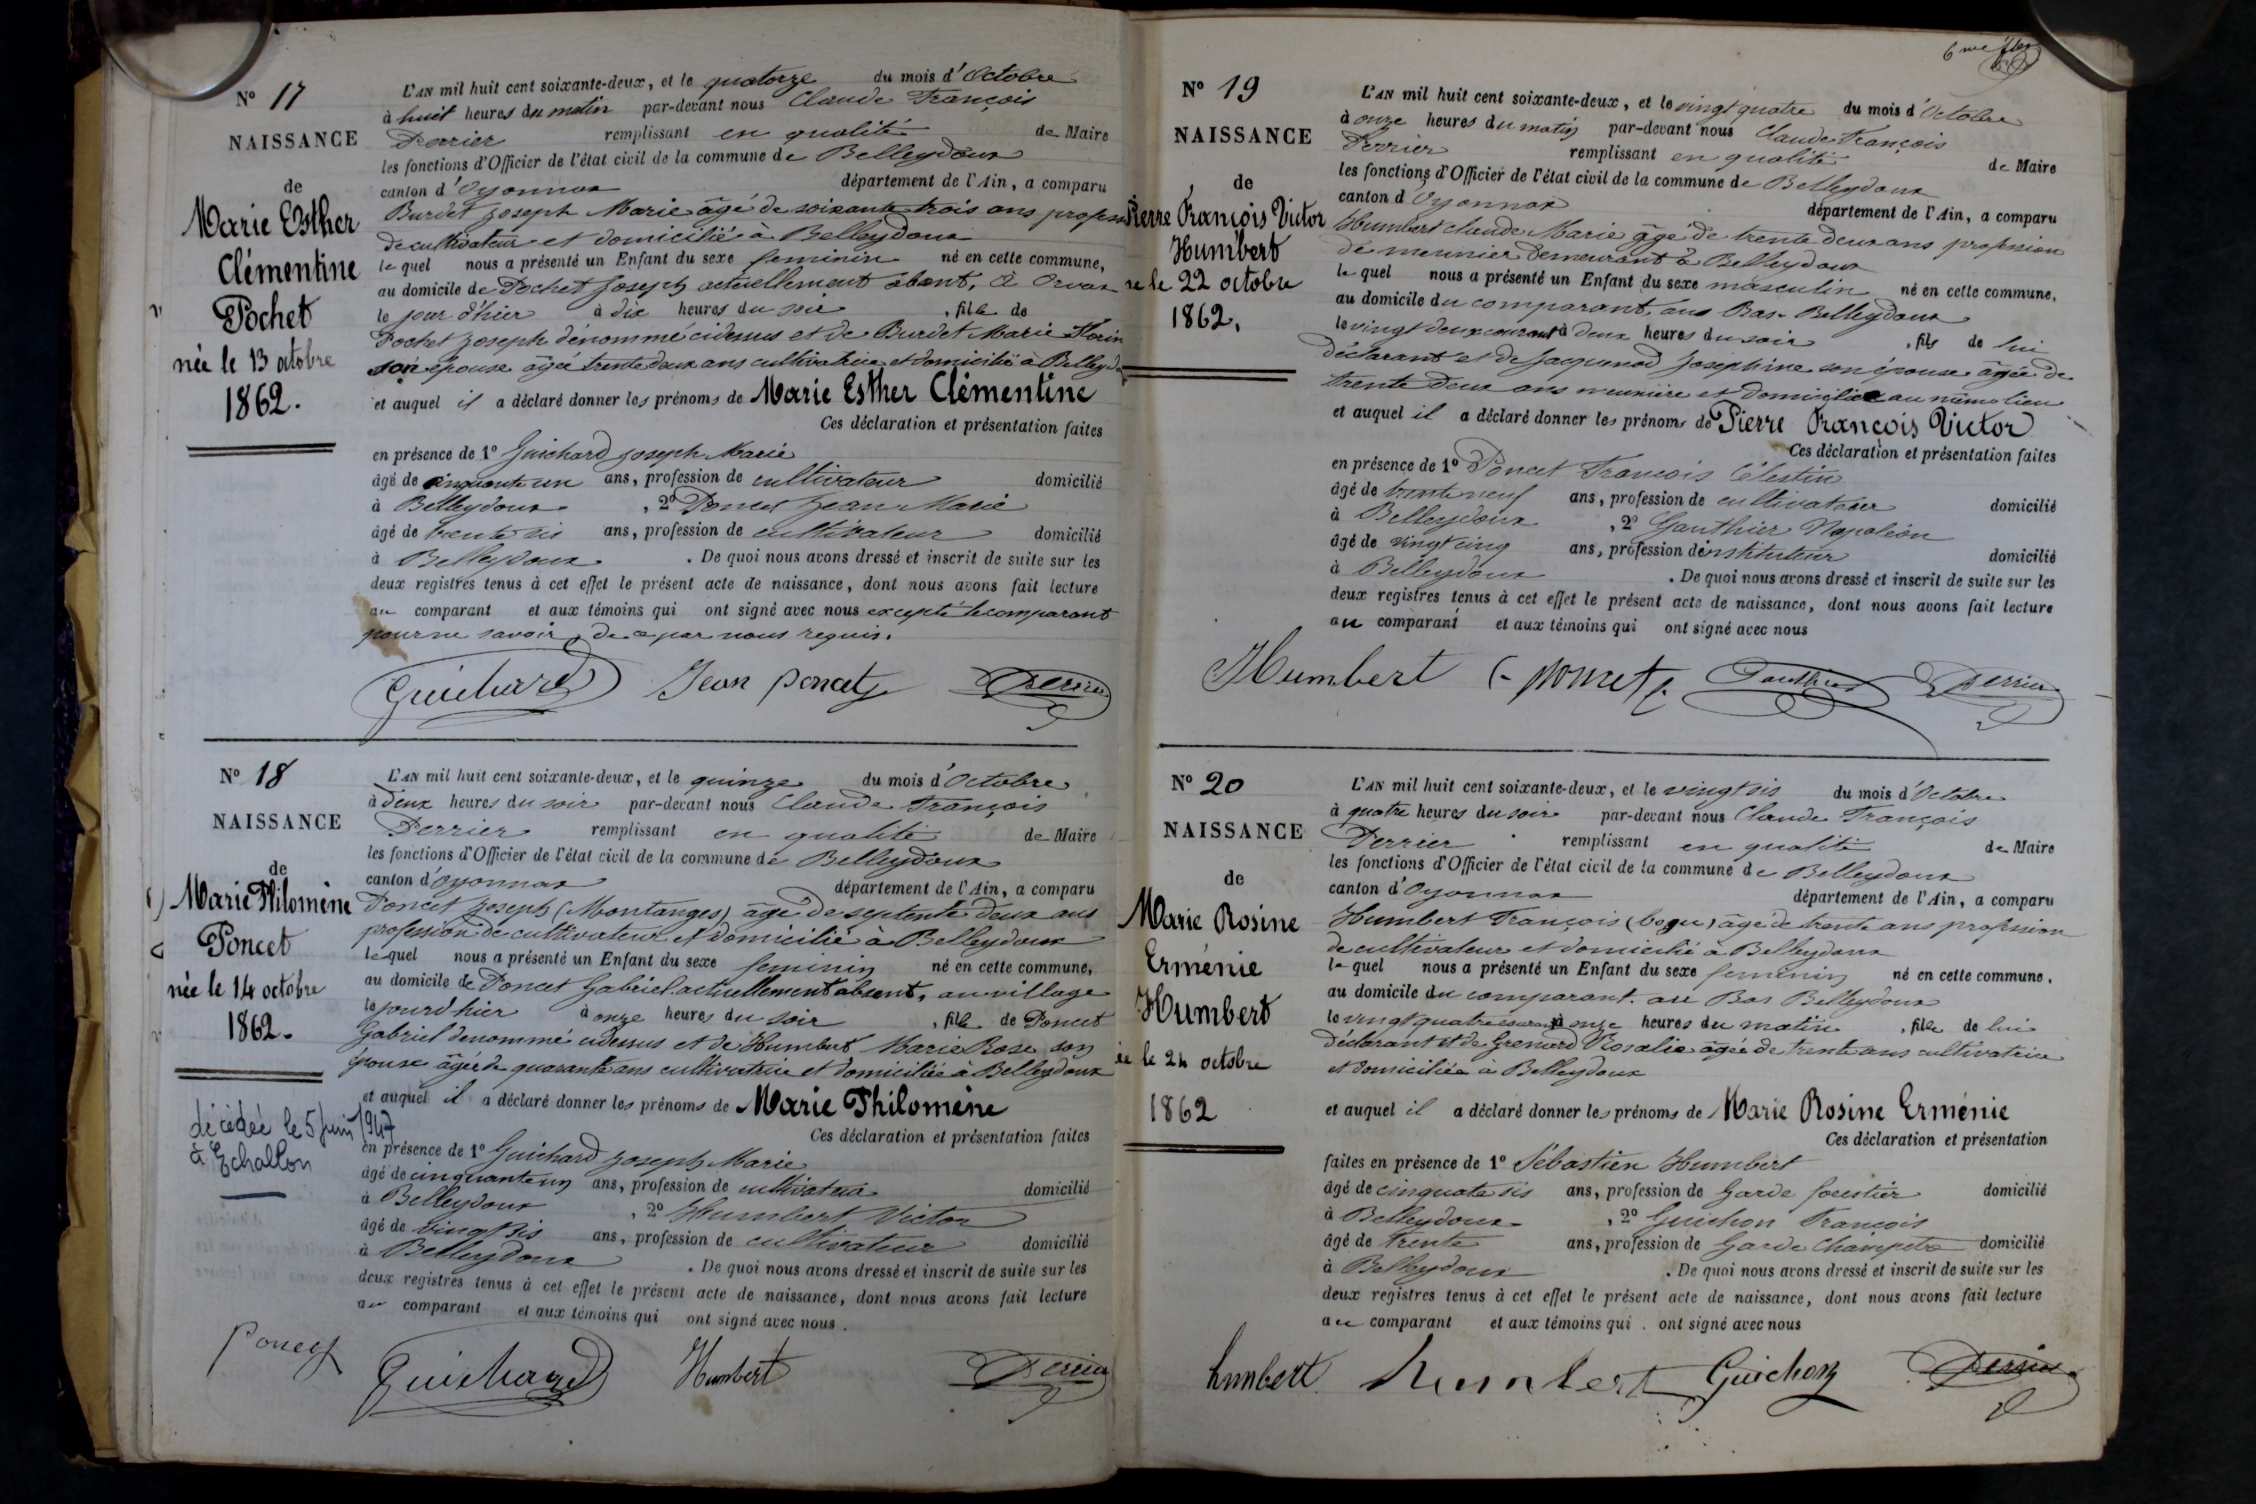 N° 17
NAISSANCE
de
Marie Esther
Clémentine
Pochet
née le 13 octobre
1862.
L'AN mil huit cent soixante-deux, et le quatorze du mois d'Octobre
à huit heures du matin par-devant nous Claude François
Perrier remplissant en qualité de Maire
les fonctions d'Officier de l'état civil de la commune de Belleydoux
canton d'Oyonnax département de l'Ain, a comparu
Burdet Joseph Marie âgé de soixante trois ans profession
de cultivateur et domicilié à Belleydoux
lequel nous a présenté un Enfant du sexe feminin né en cette commune,
au domicile de Pochet Joseph actuellement absent, à Orvaz
le jour d'hier à dix heures du soir, fille de
Pochet Joseph dénommé cidessus et de Burdet Marie
son épouse âgée trente deux ans cultivatrice et domicilié à
et auquel il a déclaré donner les prénoms de Marie Esther Clémentine
Ces déclaration et présentation faites
en présence de 1° Guichard Joseph Marie
âgé de cinquante un ans, profession de cultivateur domicilié
à Belleydoux, 2° Poncet Jean Marie
âgé de trente six ans, profession de cultivateur domicilié
à Belleydoux. De quoi nous avons dressé et inscrit de suite sur les
deux registres tenus à cet effet le présent acte de naissance, dont nous avons fait lecture
au comparant et aux témoins qui ont signé avec nous excepté le comparant
pour ne savoir, de ce par nous requis.
Guichard Jean poncet Perrier
N° 18
NAISSANCE
de
Marie Philomène
Poncet
née le 14 octobre
1862.
décédée le 5 Juin 1947
à Echallon
L'AN mil huit cent soixante-deux, et le quinze du mois d'Octobre
à deux heures du soir par-devant nous Claude François
Perrier remplissant en qualité de Maire
les fonctions d'Officier de l'état civil de la commune de Belleydoux
canton d'Oyonnax département de l'Ain, a comparu
Poncet Joseph (Montanges) âgé de septente deux ans
profession de cultivateur et domicilié à Belleydoux
lequel nous a présenté un Enfant du sexe feminin né en cette commune,
au domicile de Poncet Gabriel actuellement absent, au village
le jour d'hier à onze heures du soir, fille de Poncet
Gabriel denommé cidessus et de Humbert Marie Rose son
épouse âgée de quarante ans cultivatrice et domiciliée à Belleydoux
et auquel il a déclaré donner les prénoms de Marie Philomène
Ces déclaration et présentation faites
en présence de 1° Guichard Joseph Marie
âgé de cinquante un ans, profession de cultivateur domicilié
à Belleydoux, 2° Humbert Victor
âgé de vingt six ans, profession de cultivateur domicilié
à Belleydoux. De quoi nous avons dressé et inscrit de suite sur les
deux registres tenus à cet effet le présent acte de naissance, dont nous avons fait lecture
au comparant et aux témoins qui ont signé avec nous.
Poncet Guichard Humbert Perrier
6me
N° 19
NAISSANCE
de
Pierre François Victor
Humbert
né le 22 octobre
1862.
L'AN mil huit cent soixante-deux, et le vingt quatre du mois d'Octobre
à onze heures du matin par-devant nous Claude François
Perrier remplissant en qualité de Maire
les fonctions d'Officier de l'état civil de la commune de Belleydoux
canton d'Oyonnax département de l'Ain, a comparu
Humbert Claude Marie âgé de trente deux ans profession
de meunier demeurant à Belleydoux
lequel nous a présenté un Enfant du sexe masculin né en cette commune,
au domicile du comparant, au Bas-Belleydoux
le vingt deux courant à deux heures du soir, fils de lui
déclarant et de Jacquenod Josephine son épouse âgée de
trente deux ans meunière et domiciliée au même lieu
et auquel il a déclaré donner les prénoms de Pierre François Victor
Ces déclaration et présentation faites
en présence de 1° Poncet François Célestin
âgé de trente neuf ans, profession de cultivateur domicilié
à Belleydoux, 2° Gauthier Napoléon
âgé de vingt cinq ans, profession d'instituteur domicilié
à Belleydoux. De quoi nous avons dressé et inscrit de suite sur les
deux registres tenus à cet effet le présent acte de naissance, dont nous avons fait lecture
au comparant et aux témoins qui ont signé avec nous
Humbert poncet Gauthier Perrier
N° 20
NAISSANCE
de
Marie Rosine
Erménie
Humbert
née le 24 octobre
1862
L'AN mil huit cent soixante-deux, et le vingt six du mois d'Octobre
à quatre heures du soir par-devant nous Claude François
Perrier remplissant en qualité de Maire
les fonctions d'Officier de l'état civil de la commune de Belleydoux
canton d'Oyonnax département de l'Ain, a comparu
Humbert François (bogue) âgé de trente ans profession
de cultivateur et domicilié à Belleydoux
lequel nous a présenté un Enfant du sexe feminin né en cette commune,
au domicile du comparant. au Bas Belleydoux
le vingt quatre courant à onze heures du matin, fille de lui
déclarant et de Grenard Rosalie âgée de trente ans cultivatrice
et domiciliée à Belleydoux
et auquel il a déclaré donner les prénoms de Marie Rosine Erménie
Ces déclaration et présentation
faites en présence de 1° Sébastien Humbert
âgé de cinquate six ans, profession de Garde forestier domicilié
à Belleydoux, 2° Guichon François
âgé de trente ans, profession de Garde Champetre domicilié
à Belleydoux. De quoi nous avons dressé et inscrit de suite sur les
deux registres tenus à cet effet le présent acte de naissance, dont nous avons fait lecture
au comparant et aux témoins qui ont signé avec nous
humbert humbert Guichon Perrier